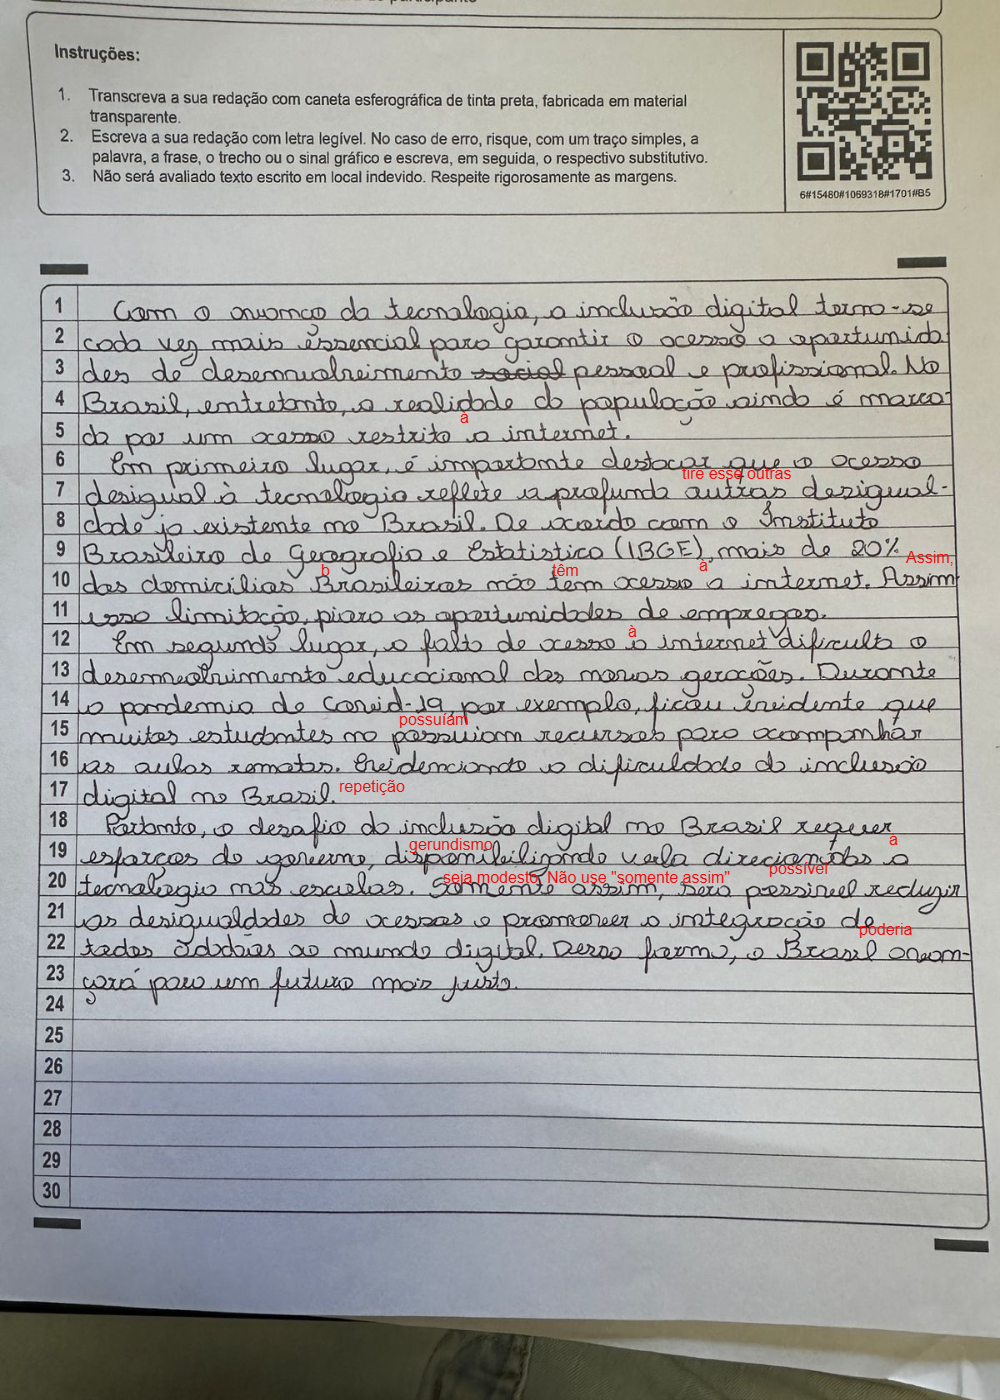 Instruções:
1. Transcreva a sua redação com caneta esferográfica de tinta preta, fabricada em material
transparente.
2. Escreva a sua redação com letra legível. No caso de erro, risque, com um traço simples, a
palavra, a frase, o trecho ou o sinal gráfico e escreva, em seguida, o respectivo substitutivo.
3. Não será avaliado texto escrito em local indevido. Respeite rigorosamente as margens.
6#15480#1069318#1701#B5
1 Com o avanço da tecnologia, a inclusão digital torna-se
2 cada vez mais essencial para garantir o acesso a oportunida
3 des de desenvolvimento social pessoal e profissional. No
4 Brasil, entretanto, a realidade da população ainda é marca-
à
5 da por um acesso restrito a internet.
6 Em primeiro lugar, é importante destacar que o acesso
tire esse outras
7 desigual à tecnologia reflete a profunda outras desigual-
8 dade ja existente no Brasil. De acordo com o Instituto
9 Brasileiro de Geografia e Estatistica (IBGE), mais de 20%
b têm à Assim,
10 dos domicílios Brasileiros não tem acesso a internet. Assim
11 essa limitação, piora as oportunidades de empregos.
à
12 Em segundo lugar, a falta de acesso a internet dificulta o
13 desenvolvimento educacional das novas gerações. Durante
14 a pandemia de Covid-19, por exemplo, ficou evidente que
possuíam
15 muitos estudantes no possuiam recursos para acompanhar
16 as aulas remotas. Evidenciando a dificuldade da inclusão
17 digital no Brasil. repetição
18 Portanto, o desafio da inclusão digital no Brasil requer
gerundismo à
19 esforços do governo, disponibilizando verba direcionados a
seja modesto. Não use "somente assim" possível
20 tecnologia nas escolas. Somente assim, será possivel reduzir
21 as desigualdades de acessos e promover a integração de
poderia
22 todos ao mundo digital. Dessa forma, o Brasil avan-
23 çará para um futuro mais justo.
24
25
26
27
28
29
30